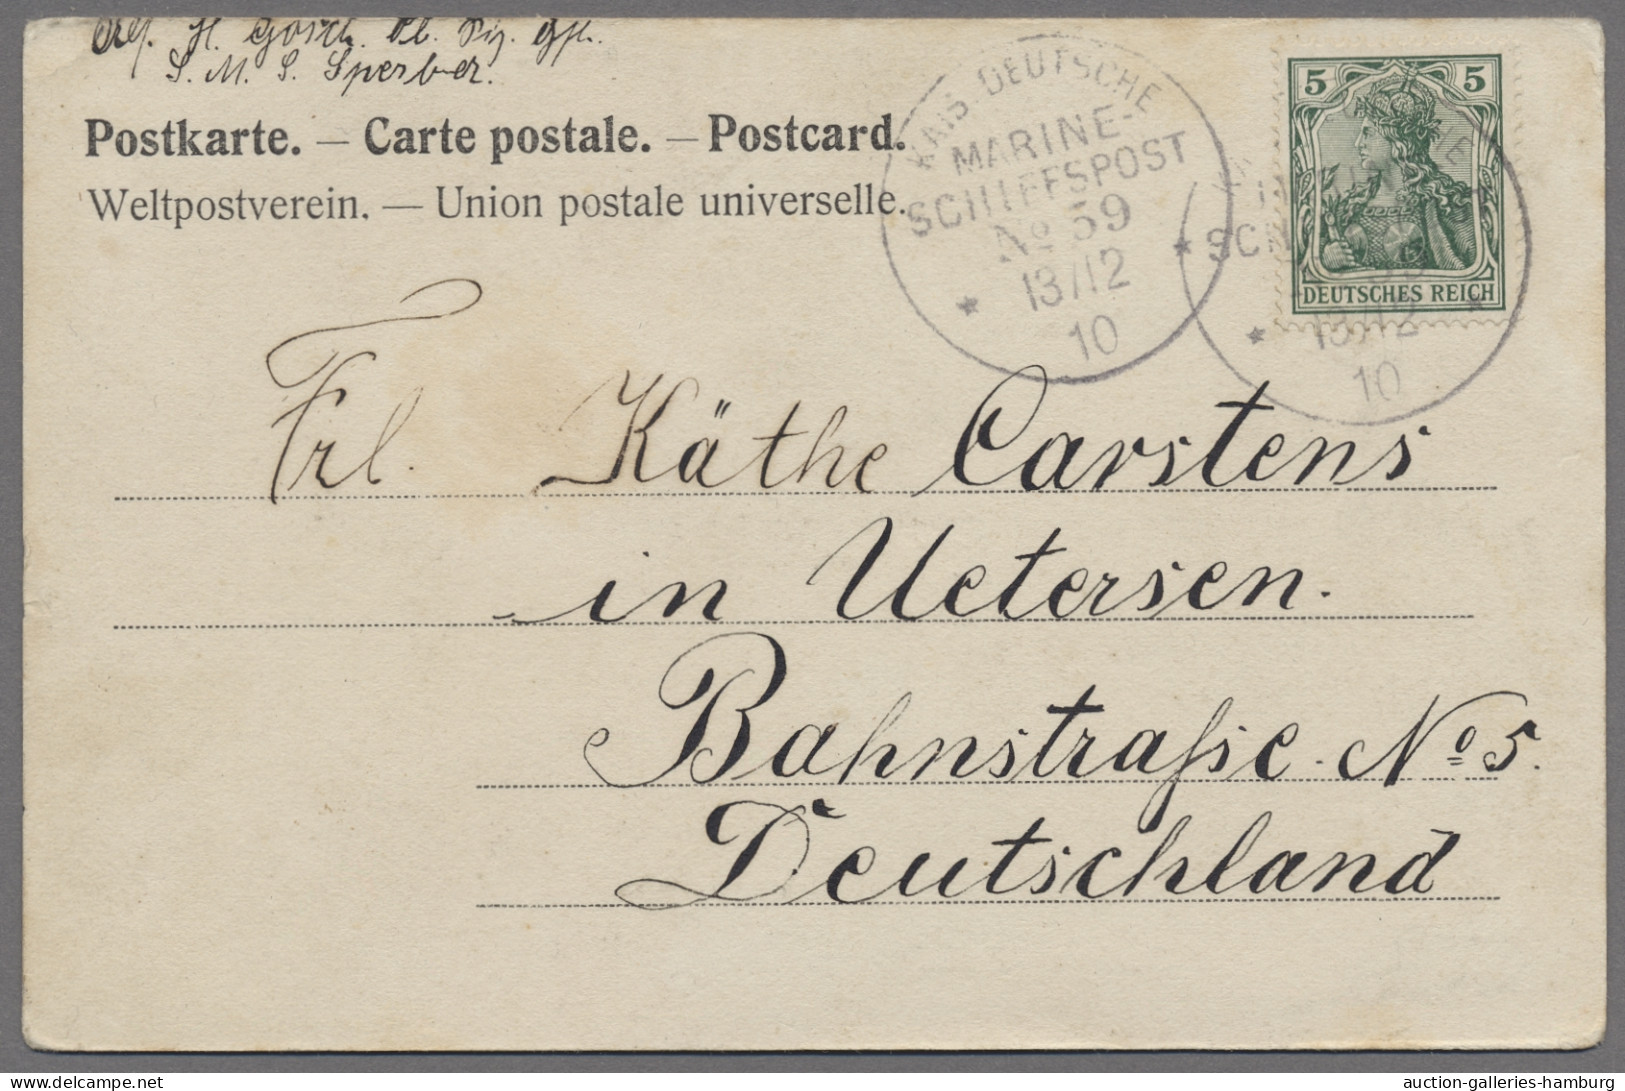 H. Gosch.
S. M. S. Sperber.
Postkarte. — Carte postale. — Postcard.
Weltpostverein. — Union postale universelle.
KAIS. DEUTSCHE
MARINE-
SCHIFFSPOST
No 59
* 13/12 *
10
5 5
DEUTSCHES REICH
SC
* 13/12
10
Frl. Käthe Carstens
in Uetersen.
Bahnstraße No 5.
Deutschland
auction-galleries-hamburg
www.delcampe.net